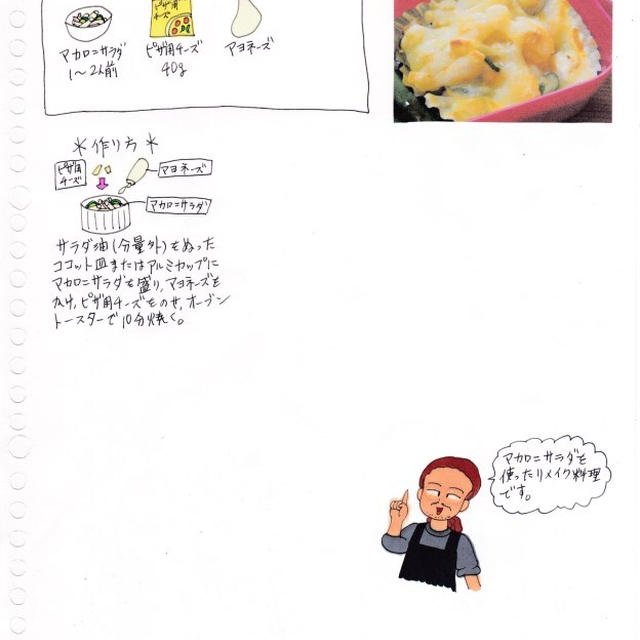 ピザ用
チーズ
マカロニサラダ
1〜2人前
ピザ用チーズ
40g
マヨネーズ
＊作り方＊
ピザ用
チーズ
マヨネーズ
マカロニサラダ
サラダ油(分量外)をぬった
ココット皿またはアルミカップに
マカロニサラダを盛り,マヨネーズを
かけ,ピザ用チーズをのせ,オーブン
トースターで10分焼く。
マカロニサラダを
使ったリメイク料理
です。